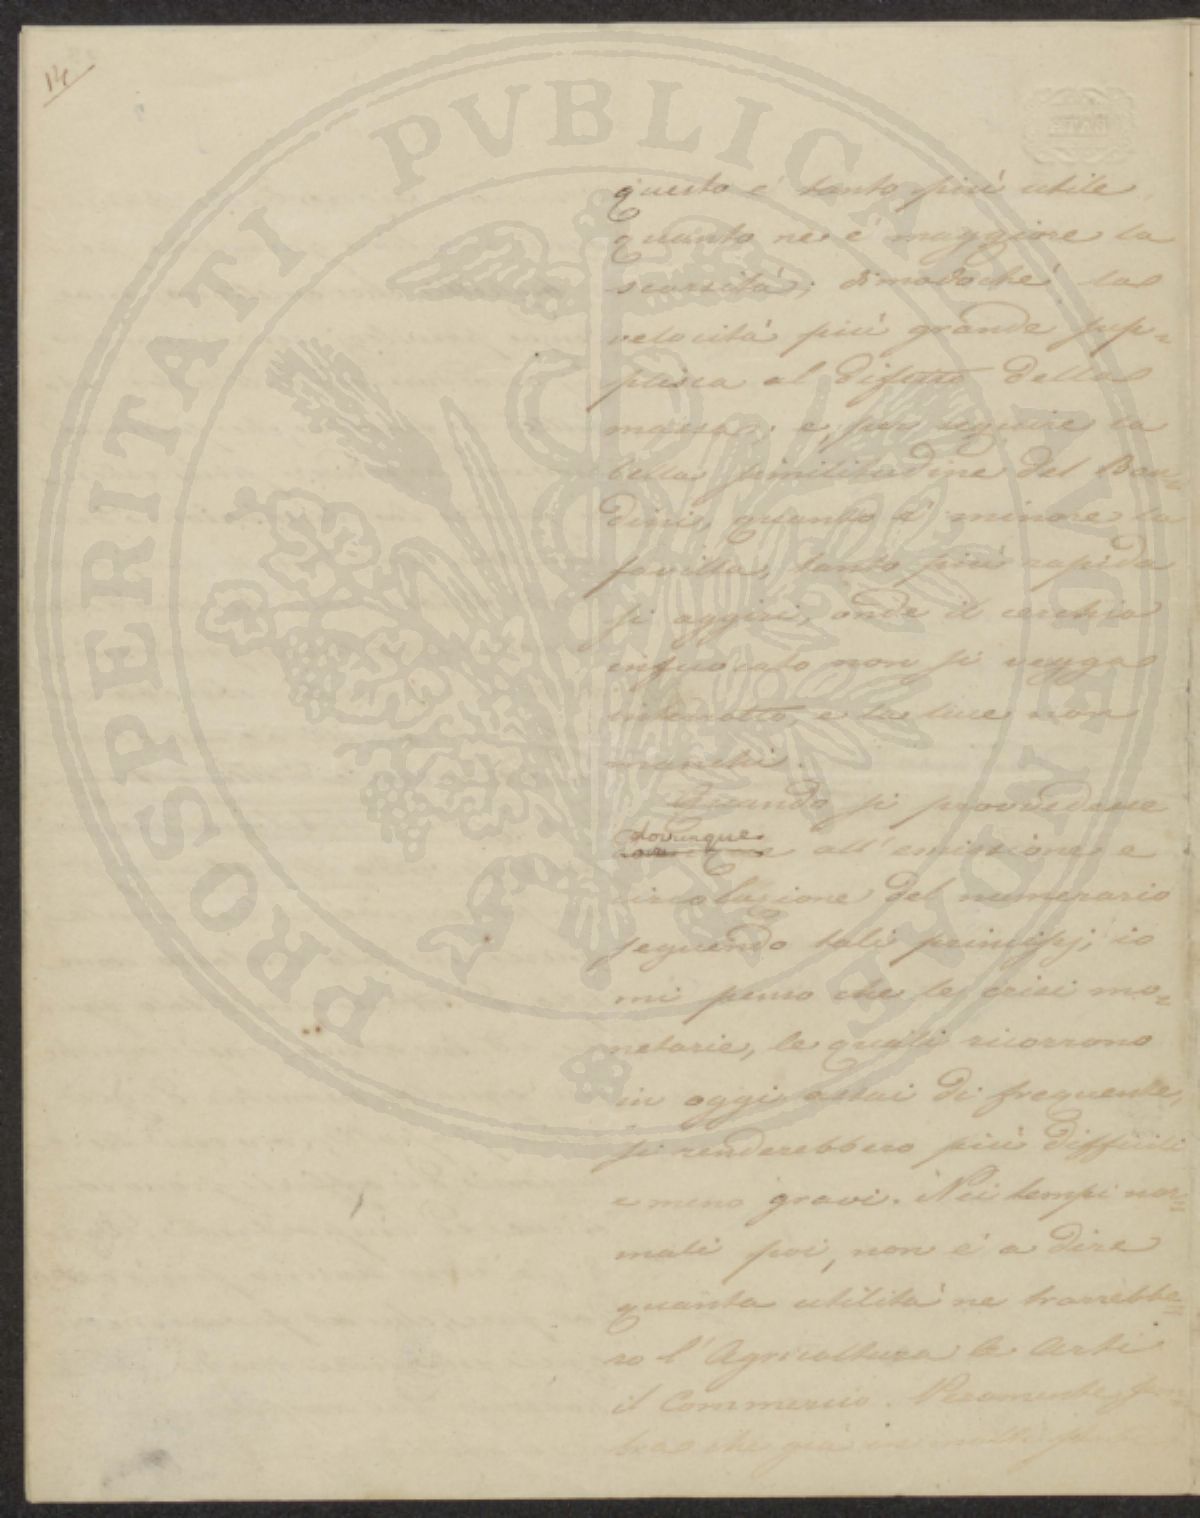 14
PROSPERITATI PVBLICAE AVGENDAE
questo è tanto più utile,
quanto ne è maggiore la
scarsità; dimodochè la
velocità più grande sup=
plisca al difetto della
massa; e, per seguire la
bella similitudine del Ban=
dini, quanto è minore la
favilla, tanto più rapida
si aggiri, onde il cerchio
infuocato non si vegga
interrotto, e la luce non
manchi.
Quando si provvedesse
dovunque
all'emissione e
circolazione del numerario
seguendo tali principj; io
mi penso che le crisi mo=
netarie, le quali ricorrono
in oggi assai di frequente,
si renderebbero più difficili
e meno gravi. Nei tempi nor=
mali poi, non è a dire
quanta utilità ne trarrebbe=
ro l'Agricoltura le Arti
il Commercio. Veramente, sem
bra che già in molti